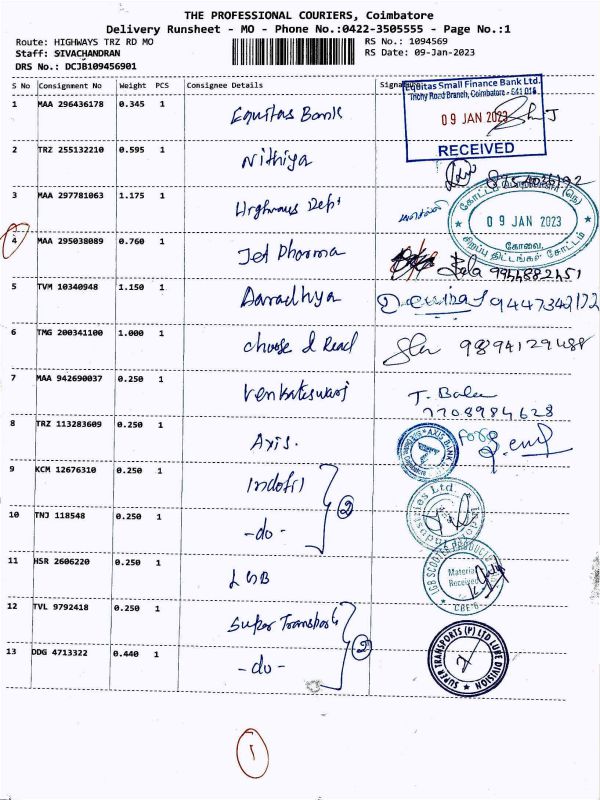 THE PROFESSIONAL COURIERS, Coimbatore
Delivery Runsheet - MO - Phone No.:0422-3505555 - Page No.:1
Route: HIGHWAYS TRZ RD MO
RS No.: 1094569
Staff: SIVACHANDRAN
RS Date: 09-Jan-2023
DRS No.: DCJB109456901
S No Consignment No Weight PCS Consignee Details
Equitas Small Finance Bank Ltd.
Trichy Road Branch, Coimbatore - 641 018
09 JAN 2023
RECEIVED
1 MAA 296436178 0.345 1 Equitas Bank
2 TRZ 255132210 0.595 1 Nithiya
3 MAA 297781063 1.175 1 Highways Dept
கோவை.
சிறப்பு திட்டங்கள் கோட்டம்
09 JAN 2023
4 MAA 295038089 0.760 1 Jet Pharma Bala 9944882451
5 TVM 10340948 1.150 1 Aaradhya 9447342172
6 TMG 200341100 1.000 1 choose & Read 9894129488
7 MAA 942690037 0.250 1 Venkateswari T. Bala
7708984628
8 TRZ 113283609 0.250 1 Axis.
AXIS BANK
9 KCM 12676310 0.250 1 Indofil
2
10 TNJ 118548 0.250 1 -do-
Industries Ltd.
11 HSR 2606220 0.250 1 LGB
LGB SCOOTER PRODUCTS
Material
Received
CBE-6
12 TVL 9792418 0.250 1 Super Transports
2
13 DDG 4713322 0.440 1 -do-
SUPER TRANSPORTS (P) LTD LUBE DIVISION